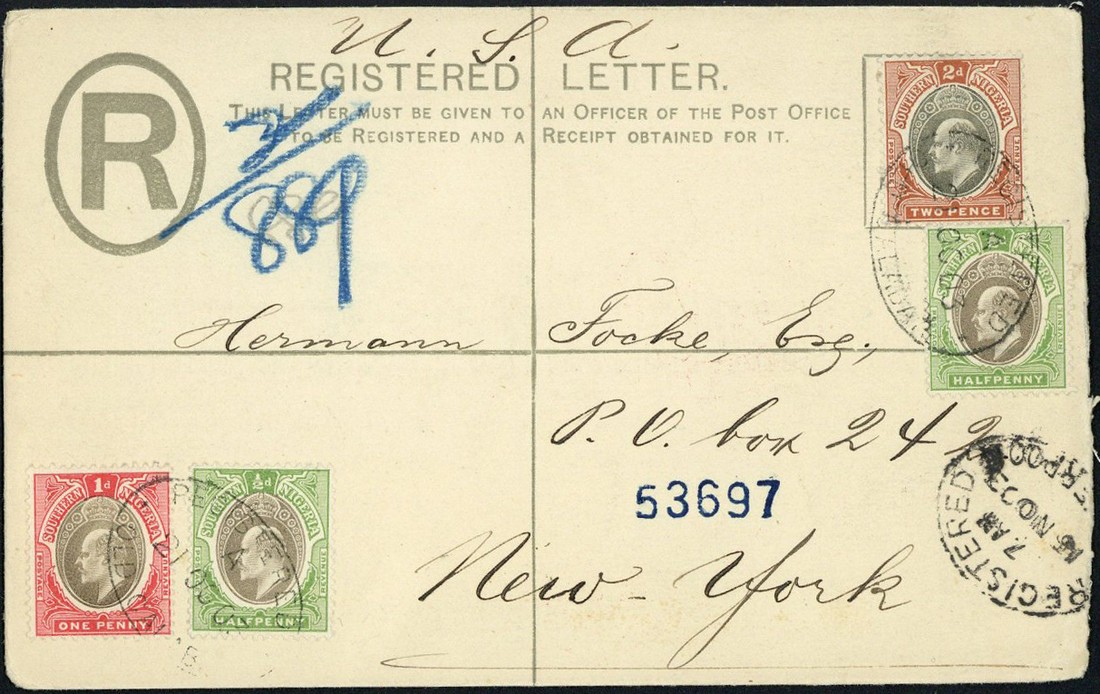 U. S. A.
REGISTERED LETTER.
THIS LETTER MUST BE GIVEN TO AN OFFICER OF THE POST OFFICE
TO BE REGISTERED AND A RECEIPT OBTAINED FOR IT.
R
2/
889
2d
SOUTHERN NIGERIA
POSTAGE REVENUE
TWO PENCE
SOUTHERN NIGERIA
REVENUE
HALFPENNY
Hermann Focke, Esq.,
P. O. box 242
53697
New-York
REGISTERED
7 AM
16 NO 03
LIVERPOOL
1d
SOUTHERN NIGERIA
POSTAGE REVENUE
ONE PENNY
½d
SOUTHERN NIGERIA
POSTAGE REVENUE
HALFPENNY
REGISTERED